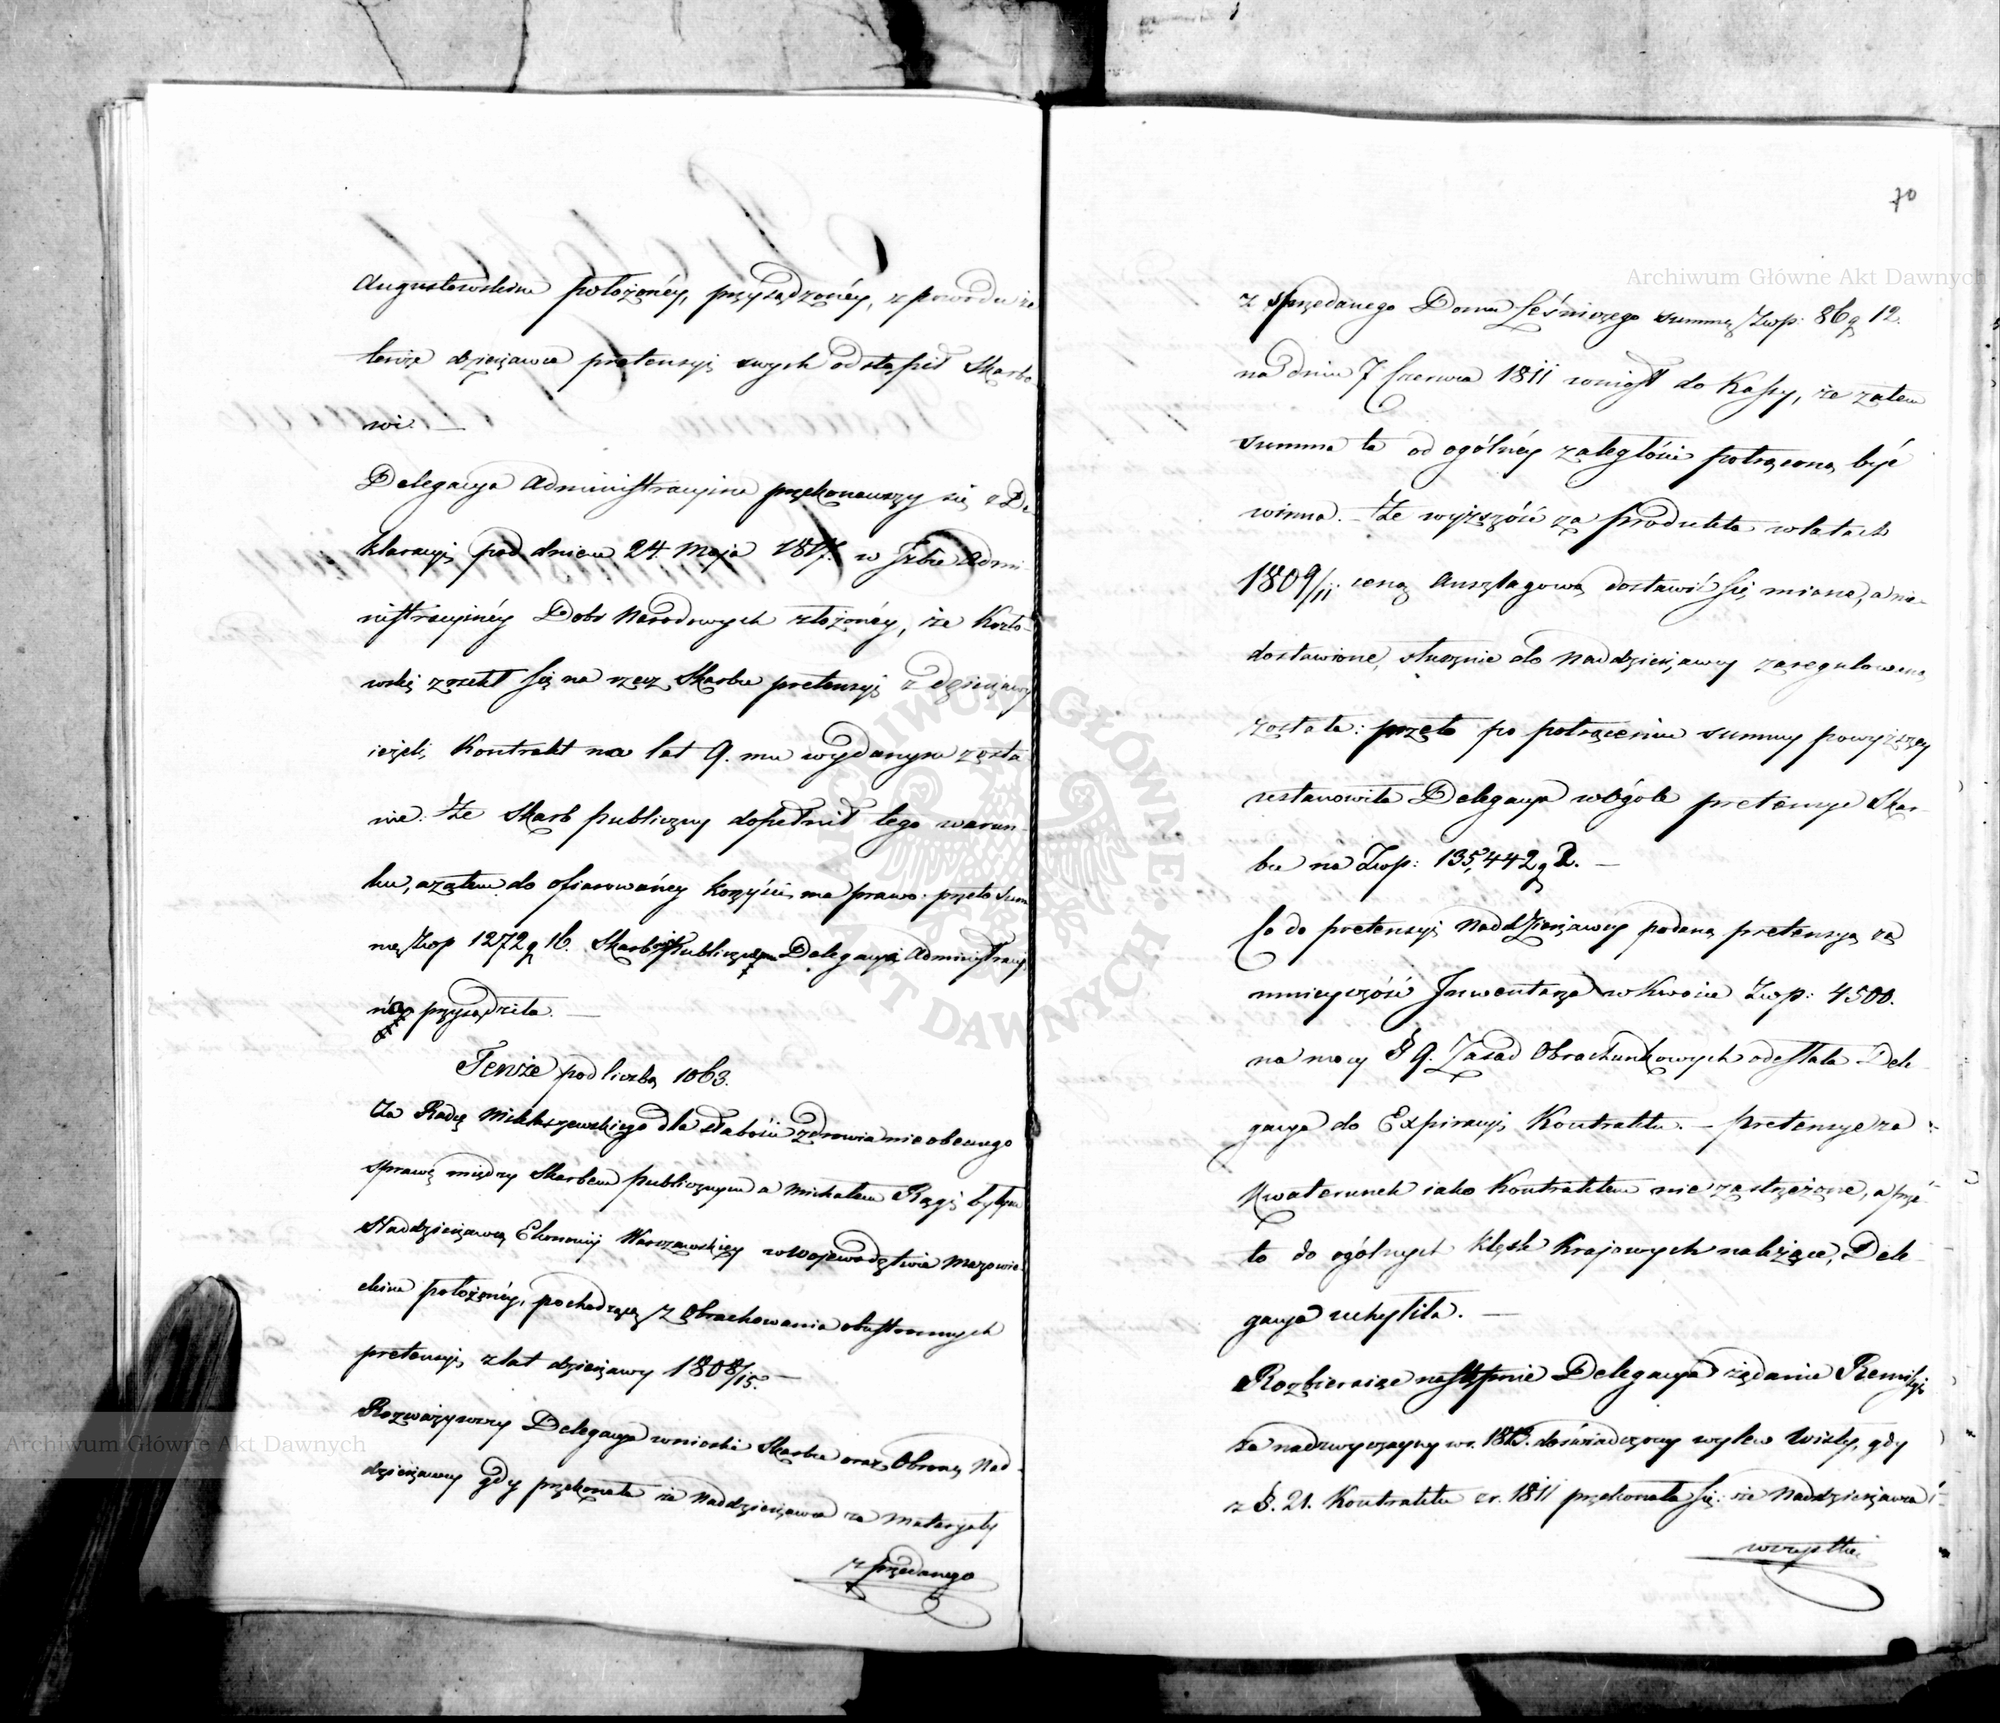 Augustowskim położonéy, przysądzonéy, z powodu że
tenże dzierżawca pretensyi swych odstąpił Skarbo
wi. —
Delegacya Administracyina przekonawszy się z De
klaracyi pod dniem 24. Maja 1817. w Izbie Admi
nistracyinéy Dobr Narodowych złożonéy, że Kozło-
wski zrzekł się na rzecz Skarbu pretensyi z dzierżawy
ieżeli Kontrakt na lat 9. mu wydanym zosta
nie. Że Skarb publiczny dopełnił tego warun
ku, a zatem do ofiarowanéy korzyści ma prawo. przeto Sum
mę Złp 1272 g 16. Skarbowi Publicznemu Delegacya Administracyi
na przysądziła. —
Tenże pod liczbą 1063.
Za Radcę Mikłaszewskiego dla słabości zdrowia nieobecnego
sprawę między Skarbem publicznym a Michałem byłym
Naddzierżawcą Ekonomij Warszawskiey w Wojewodztwie Mazowie-
ckim położonéy, pochodzącą z Obrachowania obustronnych
pretensyi z lat dzierżawy 1808/15. —
Rozważywszy Delegacya wnioski Skarbu oraz Obronę Nad-
dzierżawcy gdy przekonała że Naddzierżawca za Materyały
z przedanego
70
z sprzedanego Domu Leśniczego summę Złwp: 86 g 12.
na dniu 7 Czerwca 1811 wniosł do Kassy, że zatem
summa ta od ogólnéy zaległości potrąconą być
winna. — Że wyższość za produkta w latach
1809/11 ceną Auszlagową dostawić się miane, a nie-
dostawione, słusznie do Naddzierżawcy zaregulowaną
została: przeto po potrąceniu summy powyższey
ustanowiła Delegacya w ogóle pretensye Skar-
bu na Złwp: 135,442 g 2. —
Co do pretensyi Naddzierżawcy podaną pretensyą za
mnieyszość Inwentarza w Kwocie Złwp: 4500.
na mocy § 9. Zasad Obrachunkowych odesłała Dele-
gacya do Expiracyi Kontraktu. — pretensye za
Kwaterunek iako Kontraktem nie zastrzeżone, a prze-
to do ogólnych klęsk Krajowych należące, Dele-
gacya uchyliła. —
Rozbieraiąc następnie Delegacya żądanie Remissyi
za nadzwyczayny w r. 1813. doświadczony wylew Wisły, gdy
z §. 21. Kontraktu z r. 1811 przekonała się: że Naddzierżawca
wszystkie
Archiwum Główne Akt Dawnych
Archiwum Główne Akt Dawnych
ARCHIWUM GŁÓWNE AKT DAWNYCH